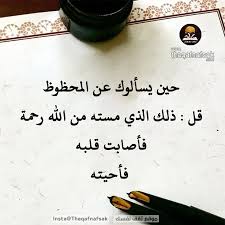 حين يسألوك عن المحظوظ
قل : ذلك الذي مسته من الله رحمة
فأصابت قلبه
فأحيته
Insta@Theqafnafsak | موقع ثقف نفسك